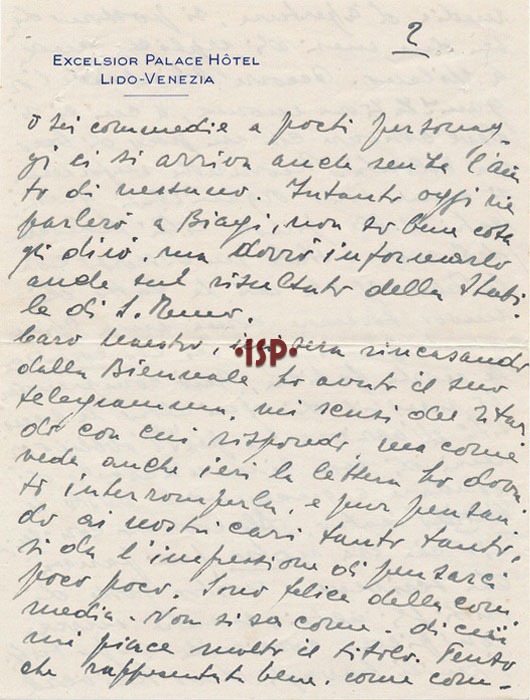 2
EXCELSIOR PALACE HÔTEL
LIDO-VENEZIA
o sei commedie a pochi personag-
gi ci si arriva anche senza l'aiu
to di nessuno. Intanto oggi ne
parlerò a Biagi, non so bene cosa
gli dirò, ma dovrò informarlo
anche sul risultato della Stabi-
le di S. Remo.
Caro Maestro, ieri sera rincasando
dalla Biennale ho avuto il suo
telegramma, mi scusi del ritar
do con cui rispondo, ma come
vede anche ieri la lettera ho dovu
to interromperla, e pur pensan
do ai nostri cari tanto tanto,
si da l'impressione di pensarci
poco poco. Sono felice della com
media. Non si sa come. di cui
mi piace molto il titolo. Tanto
che rappresentata bene. come com-
ISP